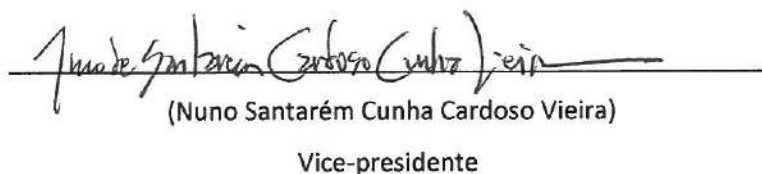 Nuno de Santarém Cardoso Cunha Vieira
(Nuno Santarém Cunha Cardoso Vieira)
Vice-presidente